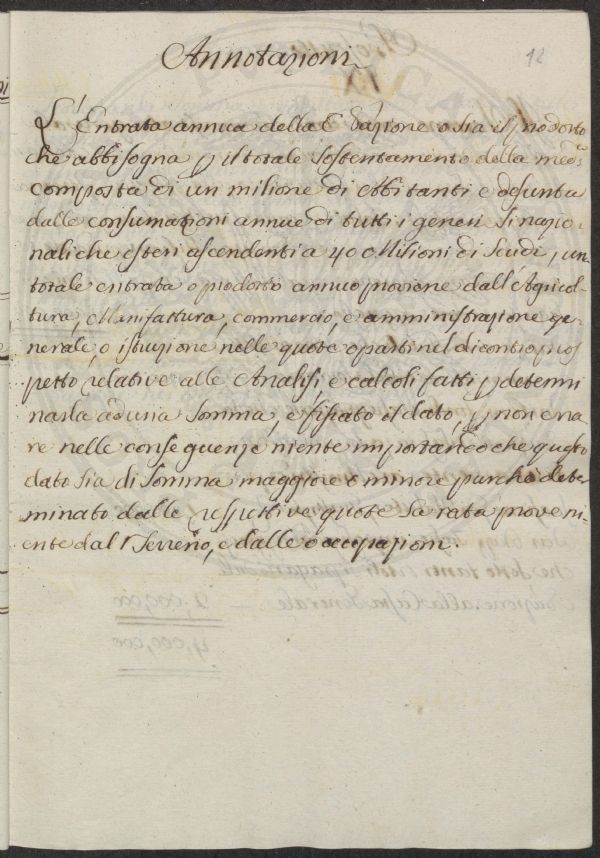 Annotazioni
12
L'Entrata annua della Nazione o sia il prodotto
che abbisogna p il totale sostentamento della med:ma
composta di un milione di Abitanti e desunta
dalle consumazioni annue di tutti i generi si nazio-
nali che esteri ascendenti a 40 Milioni di Scudi, un
totale entrata o prodotto annuo proviene dall'Agricol-
tura, Manifattura, commercio, e amministrazione ge-
nerale, o istruzione nelle quote o parti nel dicontro pros
petto relative alle Analisi, e calcoli fatti p determi
narla ad una Somma, e fissato il dato, p non erra
re nelle conseguenze niente importando che questo
dato sia di Somma maggiore o minore purchè deter
minato dalle respettive quote Sa rata proveni-
ente dal Terreno, e dalle occupazioni.
2,000,000
4,000,000